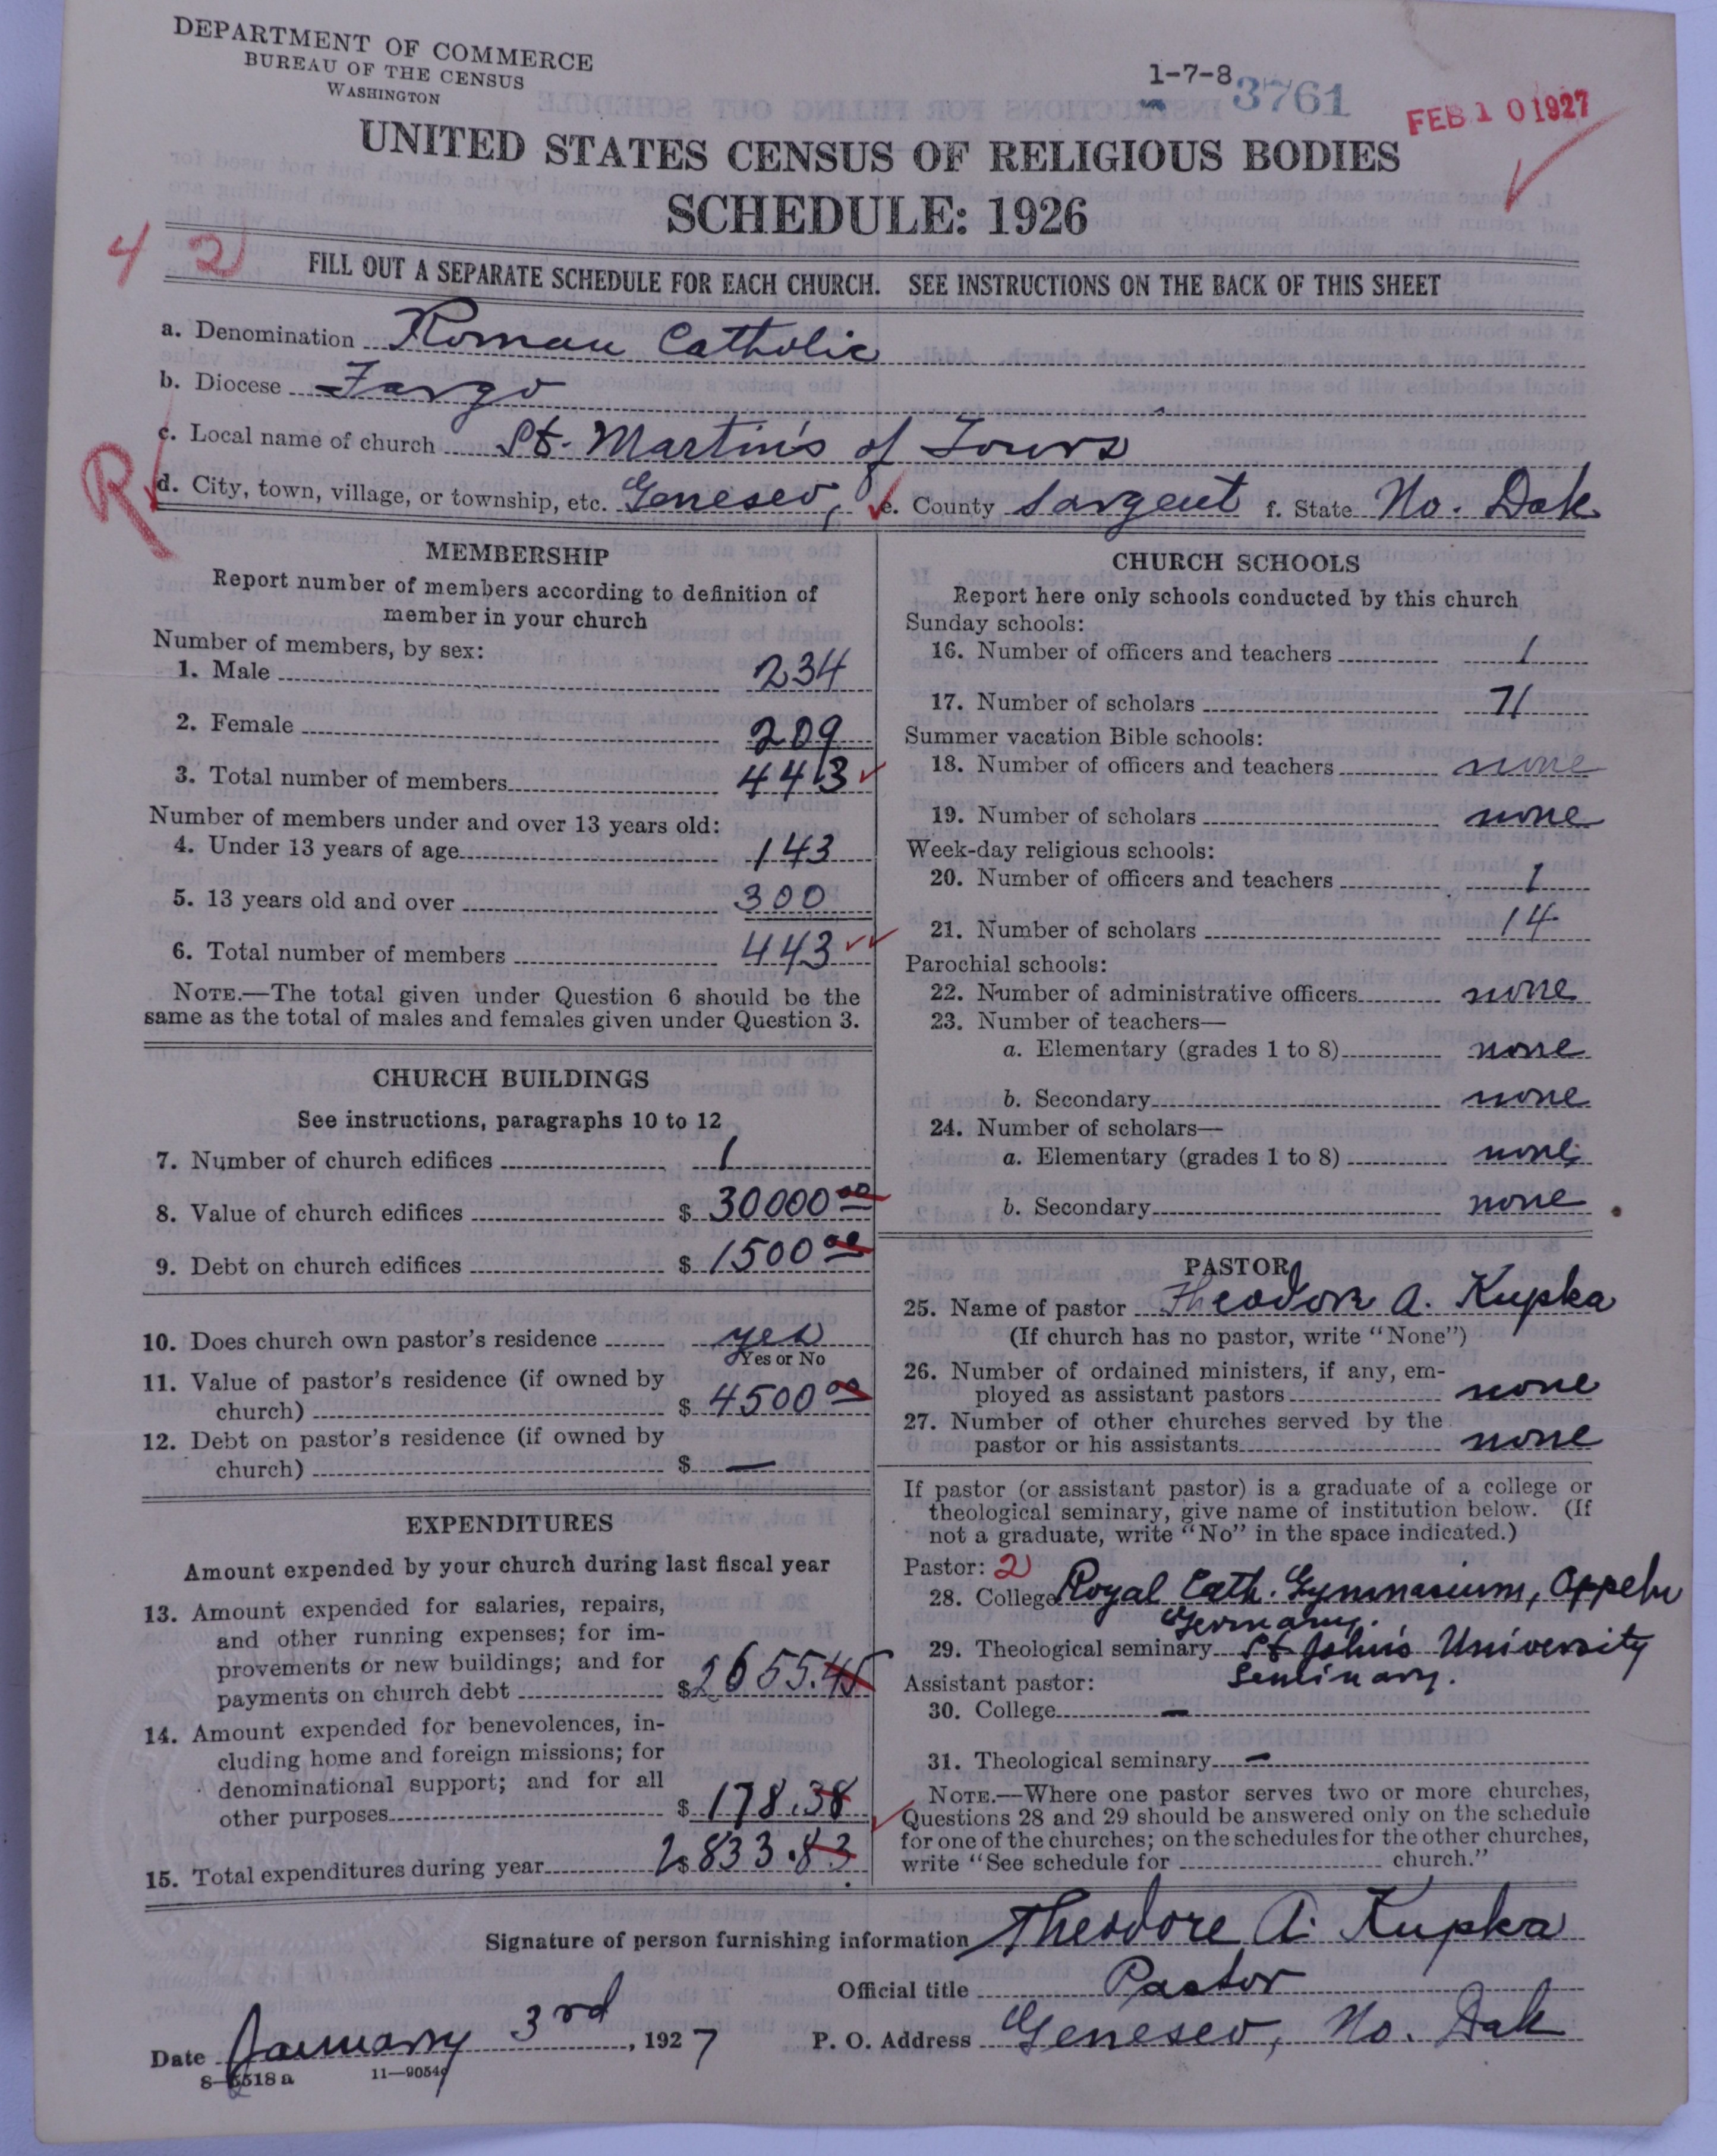 DEPARTMENT OF COMMERCE
BUREAU OF THE CENSUS
WASHINGTON
1-7-8
3761
FEB 10 1927
UNITED STATES CENSUS OF RELIGIOUS BODIES
SCHEDULE: 1926
4 2
FILL OUT A SEPARATE SCHEDULE FOR EACH CHURCH. SEE INSTRUCTIONS ON THE BACK OF THIS SHEET
a. Denomination Roman Catholic
b. Diocese Fargo
c. Local name of church St. Martin's of Tours
R
d. City, town, village, or township, etc. Geneseo, e. County Sargent f. State No. Dak
MEMBERSHIP
Report number of members according to definition of
member in your church
Number of members, by sex:
1. Male 234
2. Female 209
3. Total number of members 443
Number of members under and over 13 years old:
4. Under 13 years of age 143
5. 13 years old and over 300
6. Total number of members 443
NOTE.—The total given under Question 6 should be the
same as the total of males and females given under Question 3.
CHURCH BUILDINGS
See instructions, paragraphs 10 to 12
7. Number of church edifices 1
8. Value of church edifices $ 30000.00
9. Debt on church edifices $ 1500.00
10. Does church own pastor's residence yes
Yes or No
11. Value of pastor's residence (if owned by
church) $ 4500.00
12. Debt on pastor's residence (if owned by
church) $ —
EXPENDITURES
Amount expended by your church during last fiscal year
13. Amount expended for salaries, repairs,
and other running expenses; for im-
provements or new buildings; and for
payments on church debt $ 2655.45
14. Amount expended for benevolences, in-
cluding home and foreign missions; for
denominational support; and for all
other purposes $ 178.38
15. Total expenditures during year $ 2833.83
CHURCH SCHOOLS
Report here only schools conducted by this church
Sunday schools:
16. Number of officers and teachers 1
17. Number of scholars 71
Summer vacation Bible schools:
18. Number of officers and teachers none
19. Number of scholars none
Week-day religious schools:
20. Number of officers and teachers 1
21. Number of scholars 14
Parochial schools:
22. Number of administrative officers none
23. Number of teachers—
a. Elementary (grades 1 to 8) none
b. Secondary none
24. Number of scholars—
a. Elementary (grades 1 to 8) none
b. Secondary none
PASTOR
25. Name of pastor Theodore A. Kupka
(If church has no pastor, write "None")
26. Number of ordained ministers, if any, em-
ployed as assistant pastors none
27. Number of other churches served by the
pastor or his assistants none
If pastor (or assistant pastor) is a graduate of a college or
theological seminary, give name of institution below. (If
not a graduate, write "No" in the space indicated.)
Pastor: 2
28. College Royal Cath. Gymnasium, Oppeln
Germany.
29. Theological seminary St. John's University
Seminary.
Assistant pastor:
30. College —
31. Theological seminary —
NOTE.—Where one pastor serves two or more churches,
Questions 28 and 29 should be answered only on the schedule
for one of the churches; on the schedules for the other churches,
write "See schedule for church."
Signature of person furnishing information Theodore A. Kupka
Official title Pastor
Date January 3rd, 1927 P. O. Address Geneseo, No. Dak
8-5518 a 11—9054